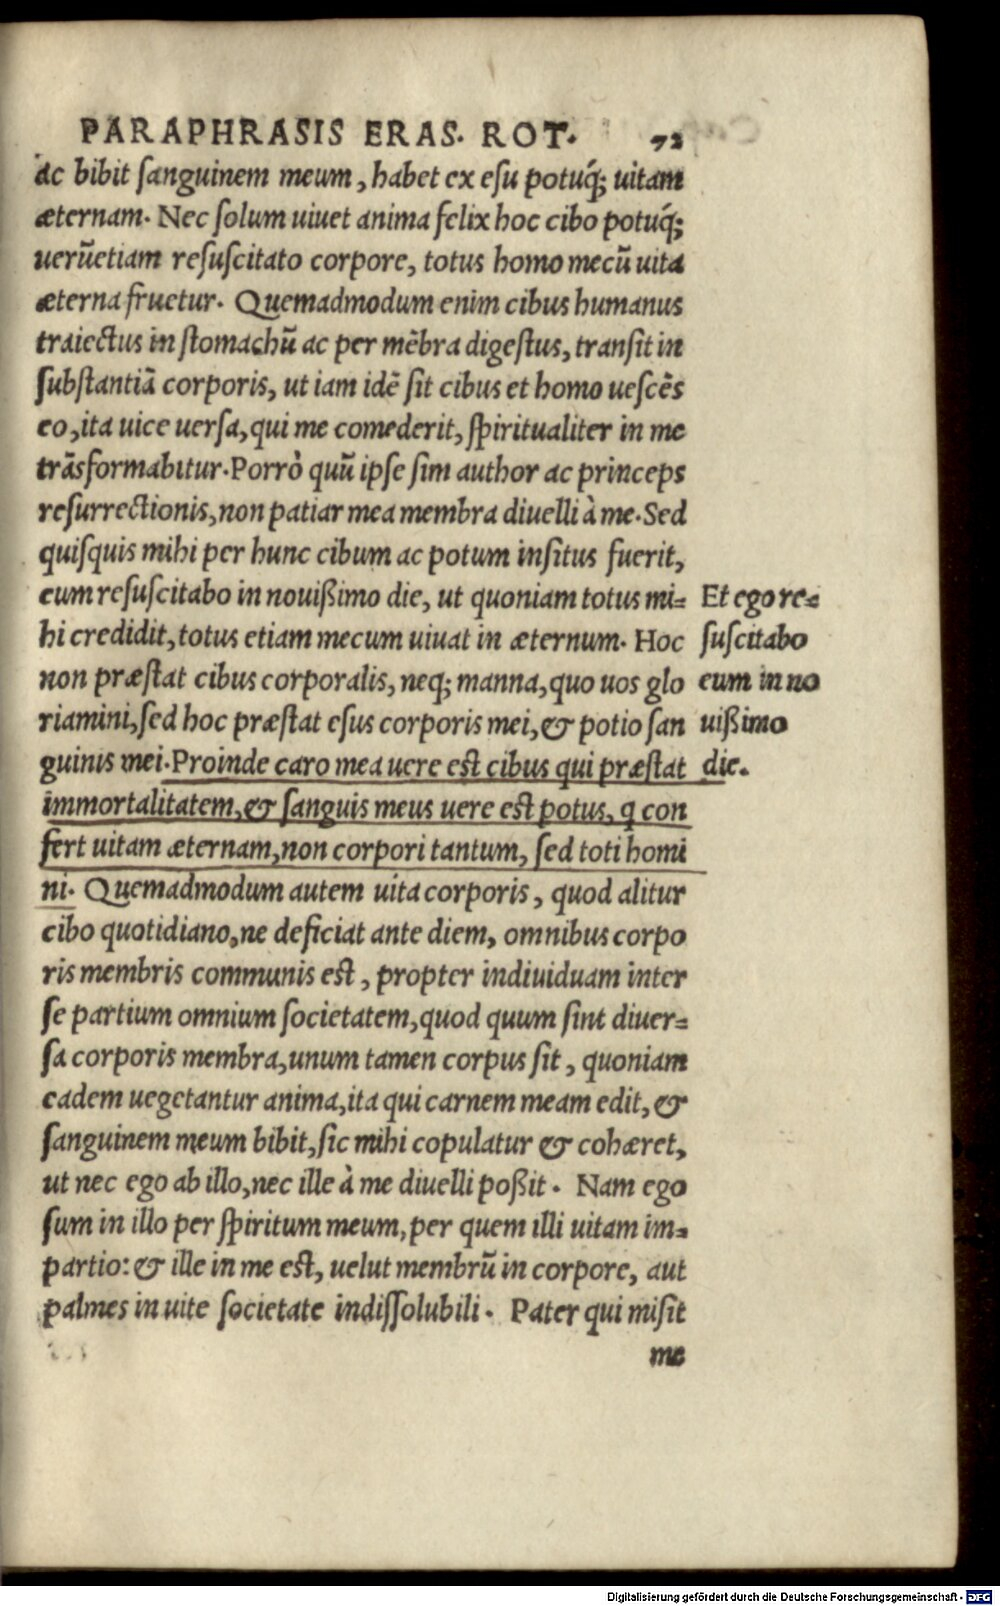 PARAPHRASIS ERAS. ROT. 72
ac bibit ſanguinem meum, habet ex eſu potuq́; uitam
æternam. Nec ſolum uiuet anima felix hoc cibo potuq́;
uerũetiam reſuſcitato corpore, totus homo mecũ uita
æterna fruetur. Quemadmodum enim cibus humanus
traiectus in ſtomachũ ac per mẽbra digeſtus, tranſit in
ſubſtantiã corporis, ut iam idẽ ſit cibus et homo ueſcẽs
eo, ita uice uerſa, qui me comederit, ſpiritualiter in me
trãsformabitur. Porrò quũ ipſe ſim author ac princeps
reſurrectionis, non patiar mea membra diuelli à me. Sed
quiſquis mihi per hunc cibum ac potum inſitus fuerit,
eum reſuſcitabo in nouißimo die, ut quoniam totus mi=
hi credidit, totus etiam mecum uiuat in æternum. Hoc
non præſtat cibus corporalis, neq; manna, quo uos glo
riamini, ſed hoc præſtat eſus corporis mei, & potio ſan
guinis mei. Proinde caro mea uere eſt cibus qui præſtat
immortalitatem, & ſanguis meus uere eſt potus, q con
fert uitam æternam, non corpori tantum, ſed toti homi
ni. Quemadmodum autem uita corporis, quod alitur
cibo quotidiano, ne deficiat ante diem, omnibus corpo
ris membris communis eſt, propter indiuiduam inter
ſe partium omnium ſocietatem, quod quum ſint diuer=
ſa corporis membra, unum tamen corpus ſit, quoniam
eadem uegetantur anima, ita qui carnem meam edit, &
ſanguinem meum bibit, ſic mihi copulatur & cohæret,
ut nec ego ab illo, nec ille à me diuelli poßit. Nam ego
ſum in illo per ſpiritum meum, per quem illi uitam im=
partio: & ille in me eſt, uelut membrũ in corpore, aut
palmes in uite ſocietate indiſſolubili. Pater qui miſit
me
Et ego re=
ſuſcitabo
eum in no
uißimo
die.
Digitalisierung gefördert durch die Deutsche Forschungsgemeinschaft - DFG